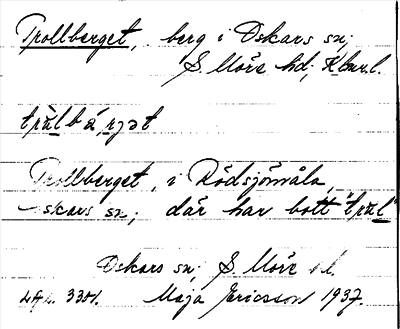 Trollberget, berg i Oskars sn;
S. Möre hd; Kbar.l.
Trollberget, i Rödsjömåla,
Oskars sn; där har bott "tpul"
Oskars sn; S. Möre hd.
3301. Maja Ericsson 1937.